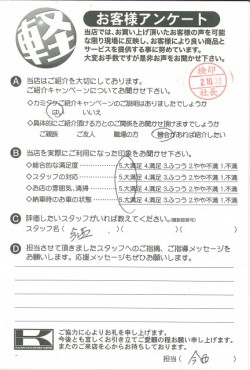 軽
お客様アンケート
当店では、お買い上げ頂いたお客様の声を可能
な限り現場に反映し、お客様により良い商品と
サービスを提供する事に努めています。
大変お手数ですが是非お声をお聞かせ下さい。
検印
社長
A 当店はご紹介を大切にしております。
ご紹介キャンペーンについてお聞かせ下さい。
◇カミタケご紹介キャンペーンのご説明はありましたでしょうか
はい いいえ
◇具体的にご紹介頂ける方とのご関係をお聞かせ頂けますでしょうか
ご親族 ご友人 職場の方 機会があれば紹介したい
B 当店を実際にご利用になった印象をお聞かせ下さい。
◇総合的な満足度 5.大満足 4.満足 3.ふつう 2.やや不満 1.不満
◇スタッフの対応 5.大満足 4.満足 3.ふつう 2.やや不満 1.不満
◇お店の雰囲気、清掃 5.大満足 4.満足 3.ふつう 2.やや不満 1.不満
◇納車時のお車の状態 5.大満足 4.満足 3.ふつう 2.やや不満 1.不満
C 評価したいスタッフがいれば教えてください。(複数回答可)
スタッフ名( 今西 )( )( )
D 担当させて頂きましたスタッフへのご指摘、ご指導メッセージを
お願いします。応援メッセージもぜひお願いします。
K
ご協力に心よりお礼を申し上げます。
今後とも宜しくお引き立てご愛顧の程お願い申し上げます。
またのご来店を心からお待ちしております。
担当( 今西 )